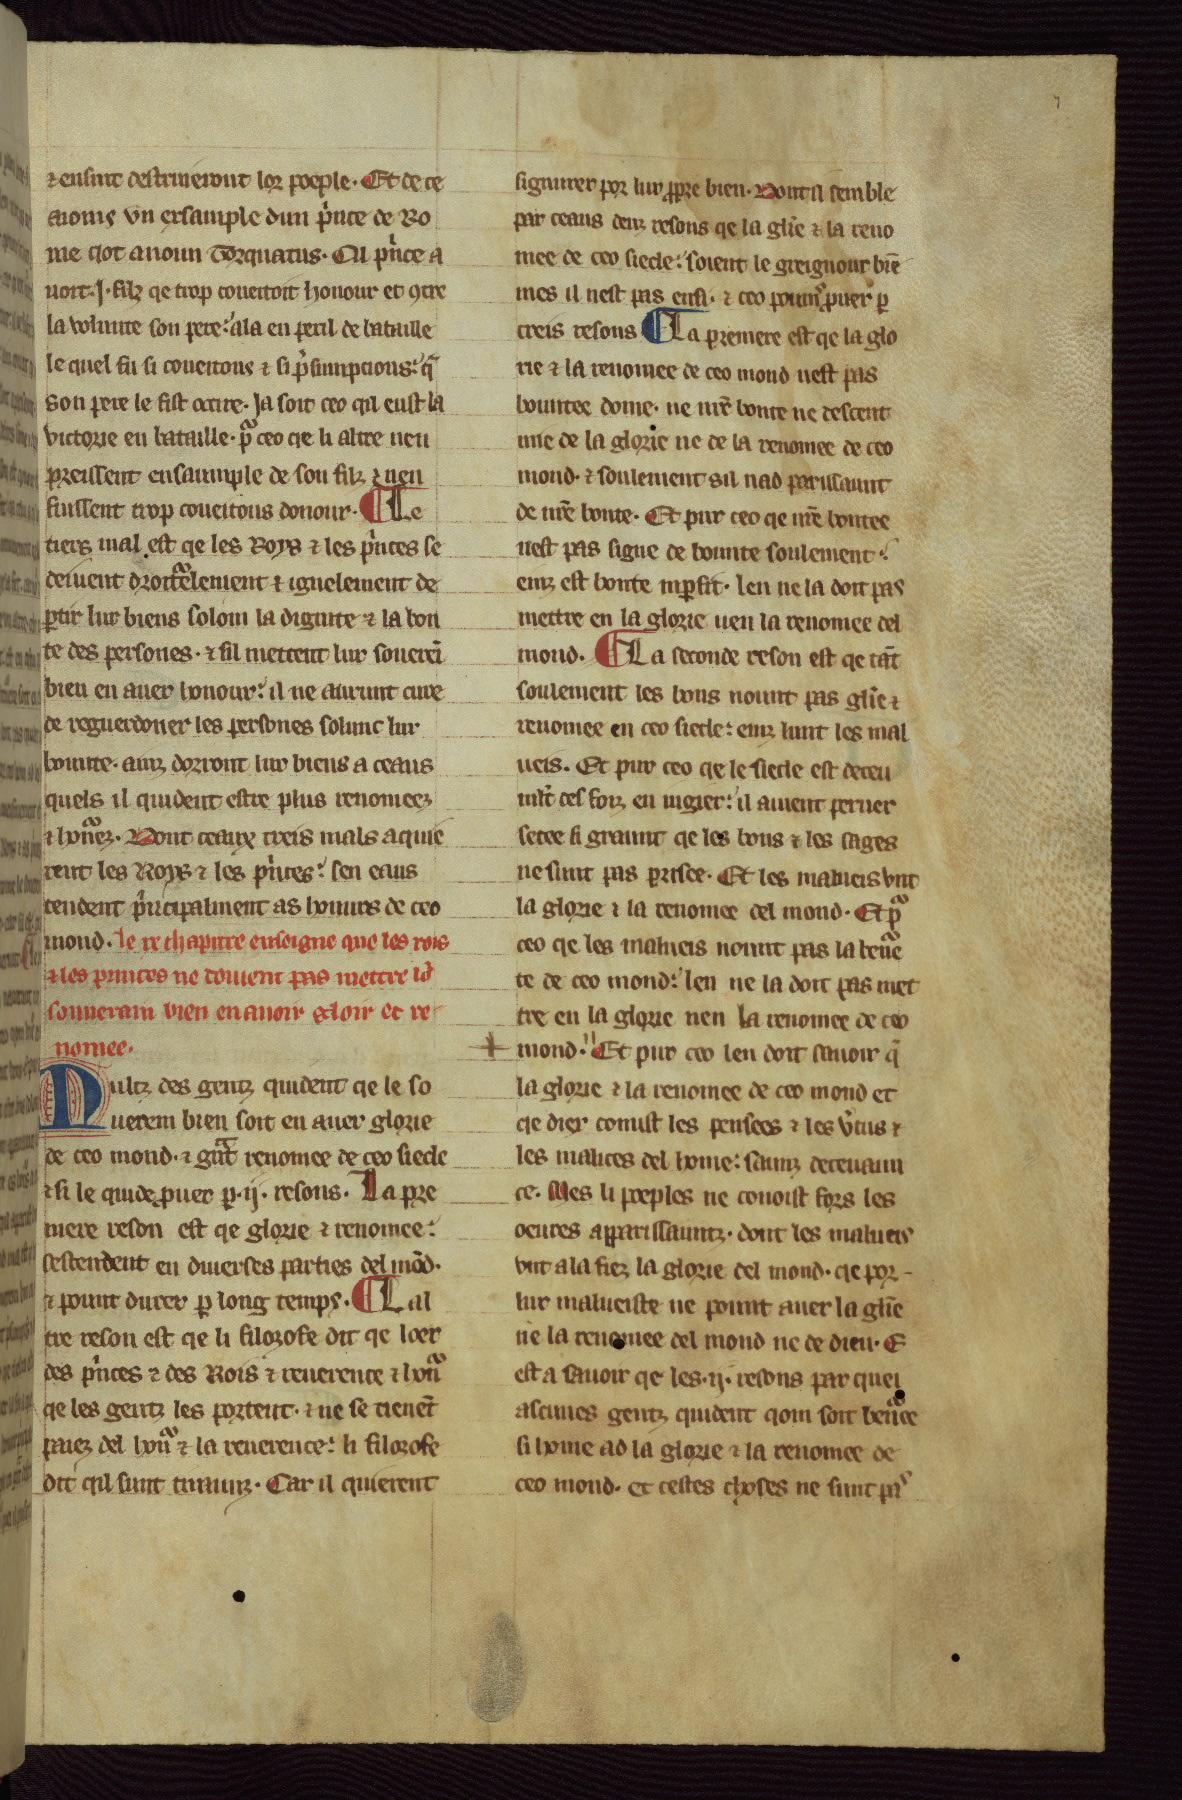 ⁊ ensint destrueront lor poeple. Et de ce
auoms vn exsample dun pⁱnce de Ro
me qot a noun Torquatus. Cil pⁱnce a
uoit .j. filz qe trop coueitoit honour et ꝯtre
la volunte son pere: ala en peril de bataille
le quel fu si coueitous ⁊ si pⁱsumpcious: q̄
son pere le fist occire. Ja soit ceo qil eust la
victorie en bataille. pᵃ ceo qe li altre nen
preissent ensaumple de son filz ⁊ nen
fuissent trop coueitous donour. ¶ Le
tiers mal est qe les Roys ⁊ les pⁱnces se
deiuent droitᵃelement ⁊ iguelement de
ꝑtir lur biens solom la dignite ⁊ la bon
te des persones. ⁊ sil mettent lur souerei
bien en auer honour: il ne aurunt cure
de reguerdoner les persones solunc lur
bounte. ainz dorront lur biens a ceaus
quels il quident estre plus renomeez
⁊ honᵃez. Dont ceaux treis mals aquie
rent les Roys ⁊ les pⁱnces: sen eaus
tendent pⁱncipalment as honurs de ceo
mond. le ix chapitre enseigne que les rois
⁊ les princes ne doiuent pas mettre lor
souuerain bien en auoir gloir et re
nomee.
Multz des gentz quident qe le so
uerem bien soit en auer glorie
de ceo mond. ⁊ gᵃnt renomee de ceo siecle
⁊ si le quide ꝓuer ꝑ .ij. resons. La pre
miere reson est qe glorie ⁊ renomee:
sestendent en diuerses parties del mōd.
⁊ point durer ꝑ long temps. ¶ Lal
tre reson est qe li filozofe dit qe loer
des pⁱnces ⁊ des Rois ⁊ reuerence ⁊ honᵃ
qe les gentz les portent. ⁊ ne se tienēt
paiez del honᵃ ⁊ la reuerence: li filozofe
dit qil sunt tirauntz. Car il quierent
signurer por lur ꝓpre bien. Dont il semble
par ceaus deuz resons qe la glīe ⁊ la reno
mee de ceo siecle: soient le greignour biē
mes il nest pas ensi. ⁊ ceo poum ꝓuer ꝑ
treis resons ¶ La premere est qe la glo
rie ⁊ la renomee de ceo mond nest pas
bountee dome. ne nrē bonte ne descent
mie de la glorie ne de la renomee de ceo
mond. ⁊ soulement sil nad parissaunt
de nrē bonte. Et pur ceo qe nrē bontee
nest pas signe de bounte soulement:
einz est bonte inꝑfit. len ne la doit pas
mettre en la glorie nen la renomee del
mond. ¶ La seconde reson est qe tāt
soulement les bons nount pas glīe ⁊
renomee en ceo siecle: einz lunt les mal
ueis. Et pur ceo qe le siecle est deceu
mlt des foiz en iugier: il auient peruer
setee si graunt qe les bons ⁊ les sages
ne sunt pas prisee. Et les malueis vnt
la glorie ⁊ la renomee del mond. Et pᵃ
ceo qe les malueis nount pas la benᵃe
te de ceo mond: len ne la doit pas met
tre en la glorie nen la renomee de ceo
mond. Et pur ceo len doit sauoir q̄
la glorie ⁊ la renomee de ceo mond et
qe dier conust les pensees ⁊ les vⁱtus ⁊
les malices del home: saunz deceuaun
ce. Mes li poeples ne conoist fors les
oeures apparissauntz. dont les malueis
vnt a la fiez la glorie del mond. qe por
lur malueiste ne point auer la glīe
ne la renomee del mond ne de dieu. E
est a sauoir qe les .ij. resons par quei
ascunes gentz quident qom soit benᵃee
si home ad la glorie ⁊ la renomee de
ceo mond. et cestes choses ne sunt pas